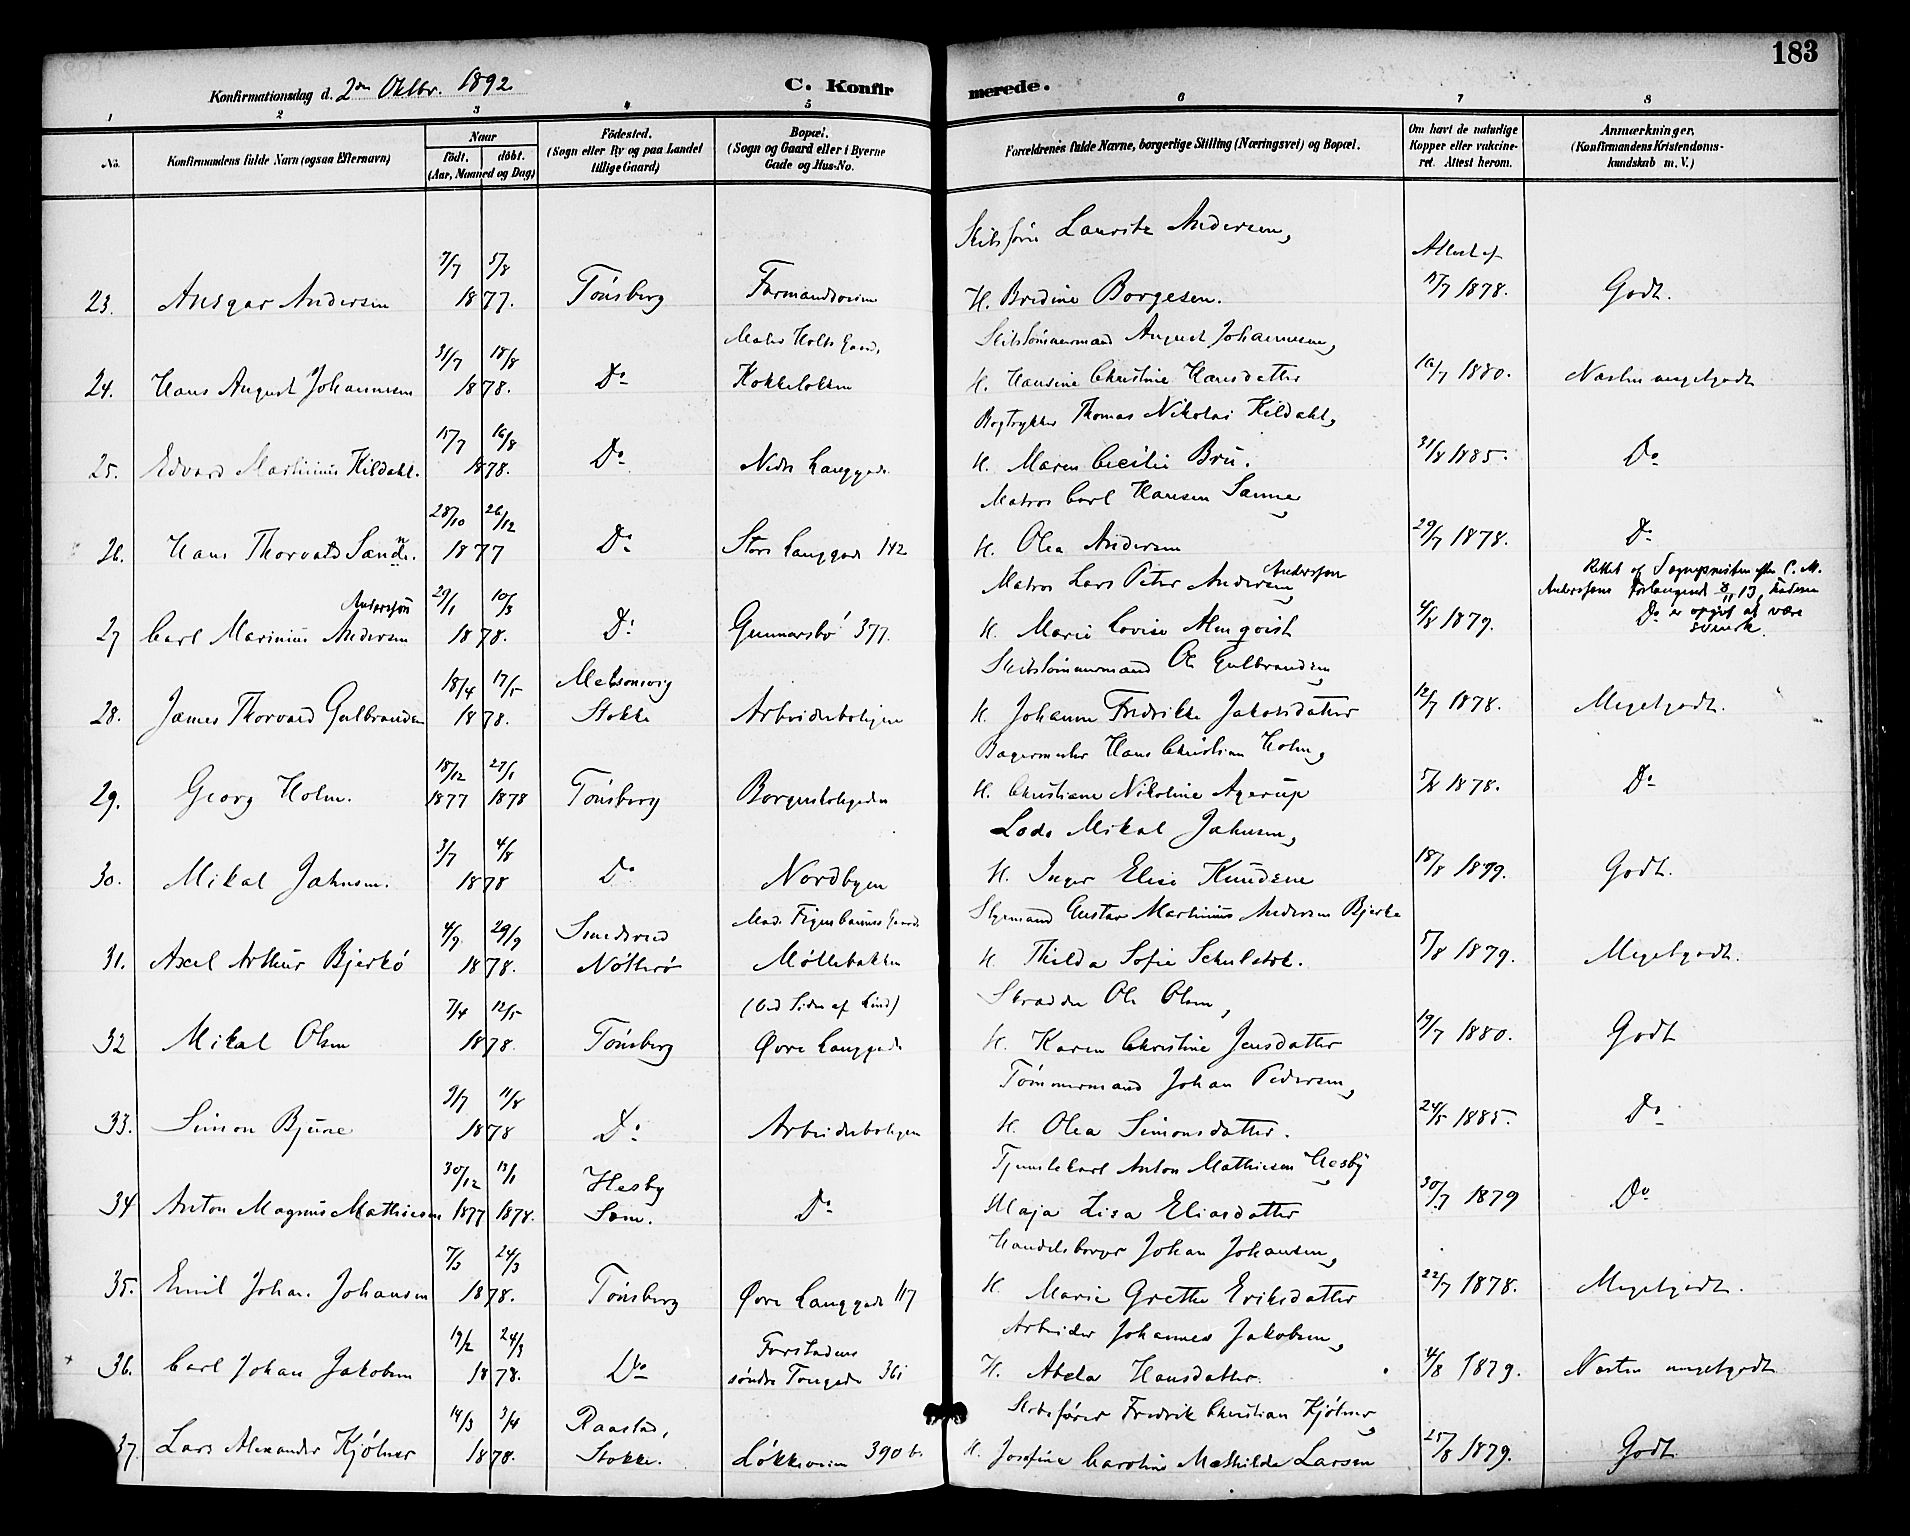 183
Konfirmationsdag d. 2den Oktbr. 1892. C. Konfirmerede.
1 2 3 4 5 6 7 8
No. Konfirmandens fulde Navn (ogsaa Efternavn) Naar født. døbt. (Aar, Maaned og Dag) Fødested. (Sogn eller By og paa Landet tillige Gaard) Bopæl. (Sogn og Gaard eller i Byerne Gade og Hus-No. Forældrenes fulde Navne, borgerlige Stilling (Næringsvei) og Bopæl. Om havt de naturlige Kopper eller vakcineret. Attest herom. Anmærkninger. (Konfirmandens Kristendomskundskab m. V.)
Skibsfører Lauritz Andersen,
7/7 5/8 Attest af
23. Ansgar Andersen 1877. Tönsberg Farmandsveien H. Bredine Borgesen. 17/7 1878. Godt.
Maler Holts Gaard, Skibstömmermand August Johannesen,
31/7 18/8
24. Hans August Johannesen 1878. Do Kokkeløkken H. Hansine Christine Hansdatter 16/7 1880. Næsten megetgodt
Bogtrykker Thomas Nikolai Kildahl,
15/7 16/8
25. Edvard Martinius Kildahl. 1878. Do Nedre Langgade H. Maren Cecilie Bru. 31/8 1885. Do
Matros Carl Hansen Sanne,
28/10 26/12
26. Hans Thorvald Sanne. 1877 Do Store Langgade 142 H. Olea Andersen 29/7 1878. Do
Matros Lars Peter Andersen, Andersson
Rettet af Sognepresten efter C. M. Anderssons Forlangende 8/11 13, Faderen er opgivet at være svensk.
Andersson 29/1 10/3
27 Carl Marinius Andersen 1878. Do Gunnarsbö 377. H. Marie Lovise Almqvist 4/8 1879. Do
Skibstömmermand Ole Gulbrandsen,
18/4 17/5 Melsomvig
28. James Thorvald Gulbrandsen 1878. Stokke Arbeiderboligen H. Johanne Fredrikke Jakobsdatter 12/7 1878. Megetgodt.
Bagermester Hans Christian Holm,
18/12 27/1
29. Georg Holm. 1877 1878 Tönsberg H. Christiane Nikoline Agerup 5/8 1878. Do
Lods Mikal Jahnsen,
3/7 4/8
30. Mikal Jahnsen. 1878 Do Nordbyen H. Inger Elise Knudsen 18/8 1879. Godt.
Mad. Gaard Styrmand Gustav Martinius Andersen Bjerkø
4/9 29/9 Smidsrød
31. Axel Arthur Bjerkö 1878. Nötterö Møllebakken H. Thilda Sofie Schulstok. 5/8 1879. Megetgodt.
(Ved Siden af Lind) Skrædder Ole Olsen,
7/4 12/5
32 Mikal Olsen 1878. Tönsberg Øvre Langgade H. Karen Christine Jensdatter 19/7 1880. Godt
Tömmermand Johan Pedersen,
9/7 11/8
33. Simon Bjune 1878 Do Arbeiderboligen H. Olea Simonsdatter. 24/5 1885. Do
Tjenstekarl Anton Mathiesen Hesby,
30/12 13/1 Hesby
34 Anton Magnus Mathiesen 1877 1878. Sem. Do Maja Lisa Eliasdatter 30/7 1879 Do
Handelsborger Johan Johansen,
7/3 24/3
35. Emil Johan Johansen 1878. Tönsberg Øvre Langgade 117 H. Marie Grethe Eriksdatter 22/7 1878. Megetgodt.
Arbeider Johannes Jakobsen,
19/2 24/3 Forstadens
36. Carl Johan Jakobsen 1878. Do søndre Torvgade 361 H. Abela Hansdatter. 4/8 1879. Næsten megetgodt
Skibsfører Fredrik Christian Kjölner,
14/3 3/4 Raastad,
37. Lars Alexander Kjölner 1878. Stokke. Lökkeveien 390 b. H. Josefine Caroline Mathilde Larsen 25/8 1879. Godt.